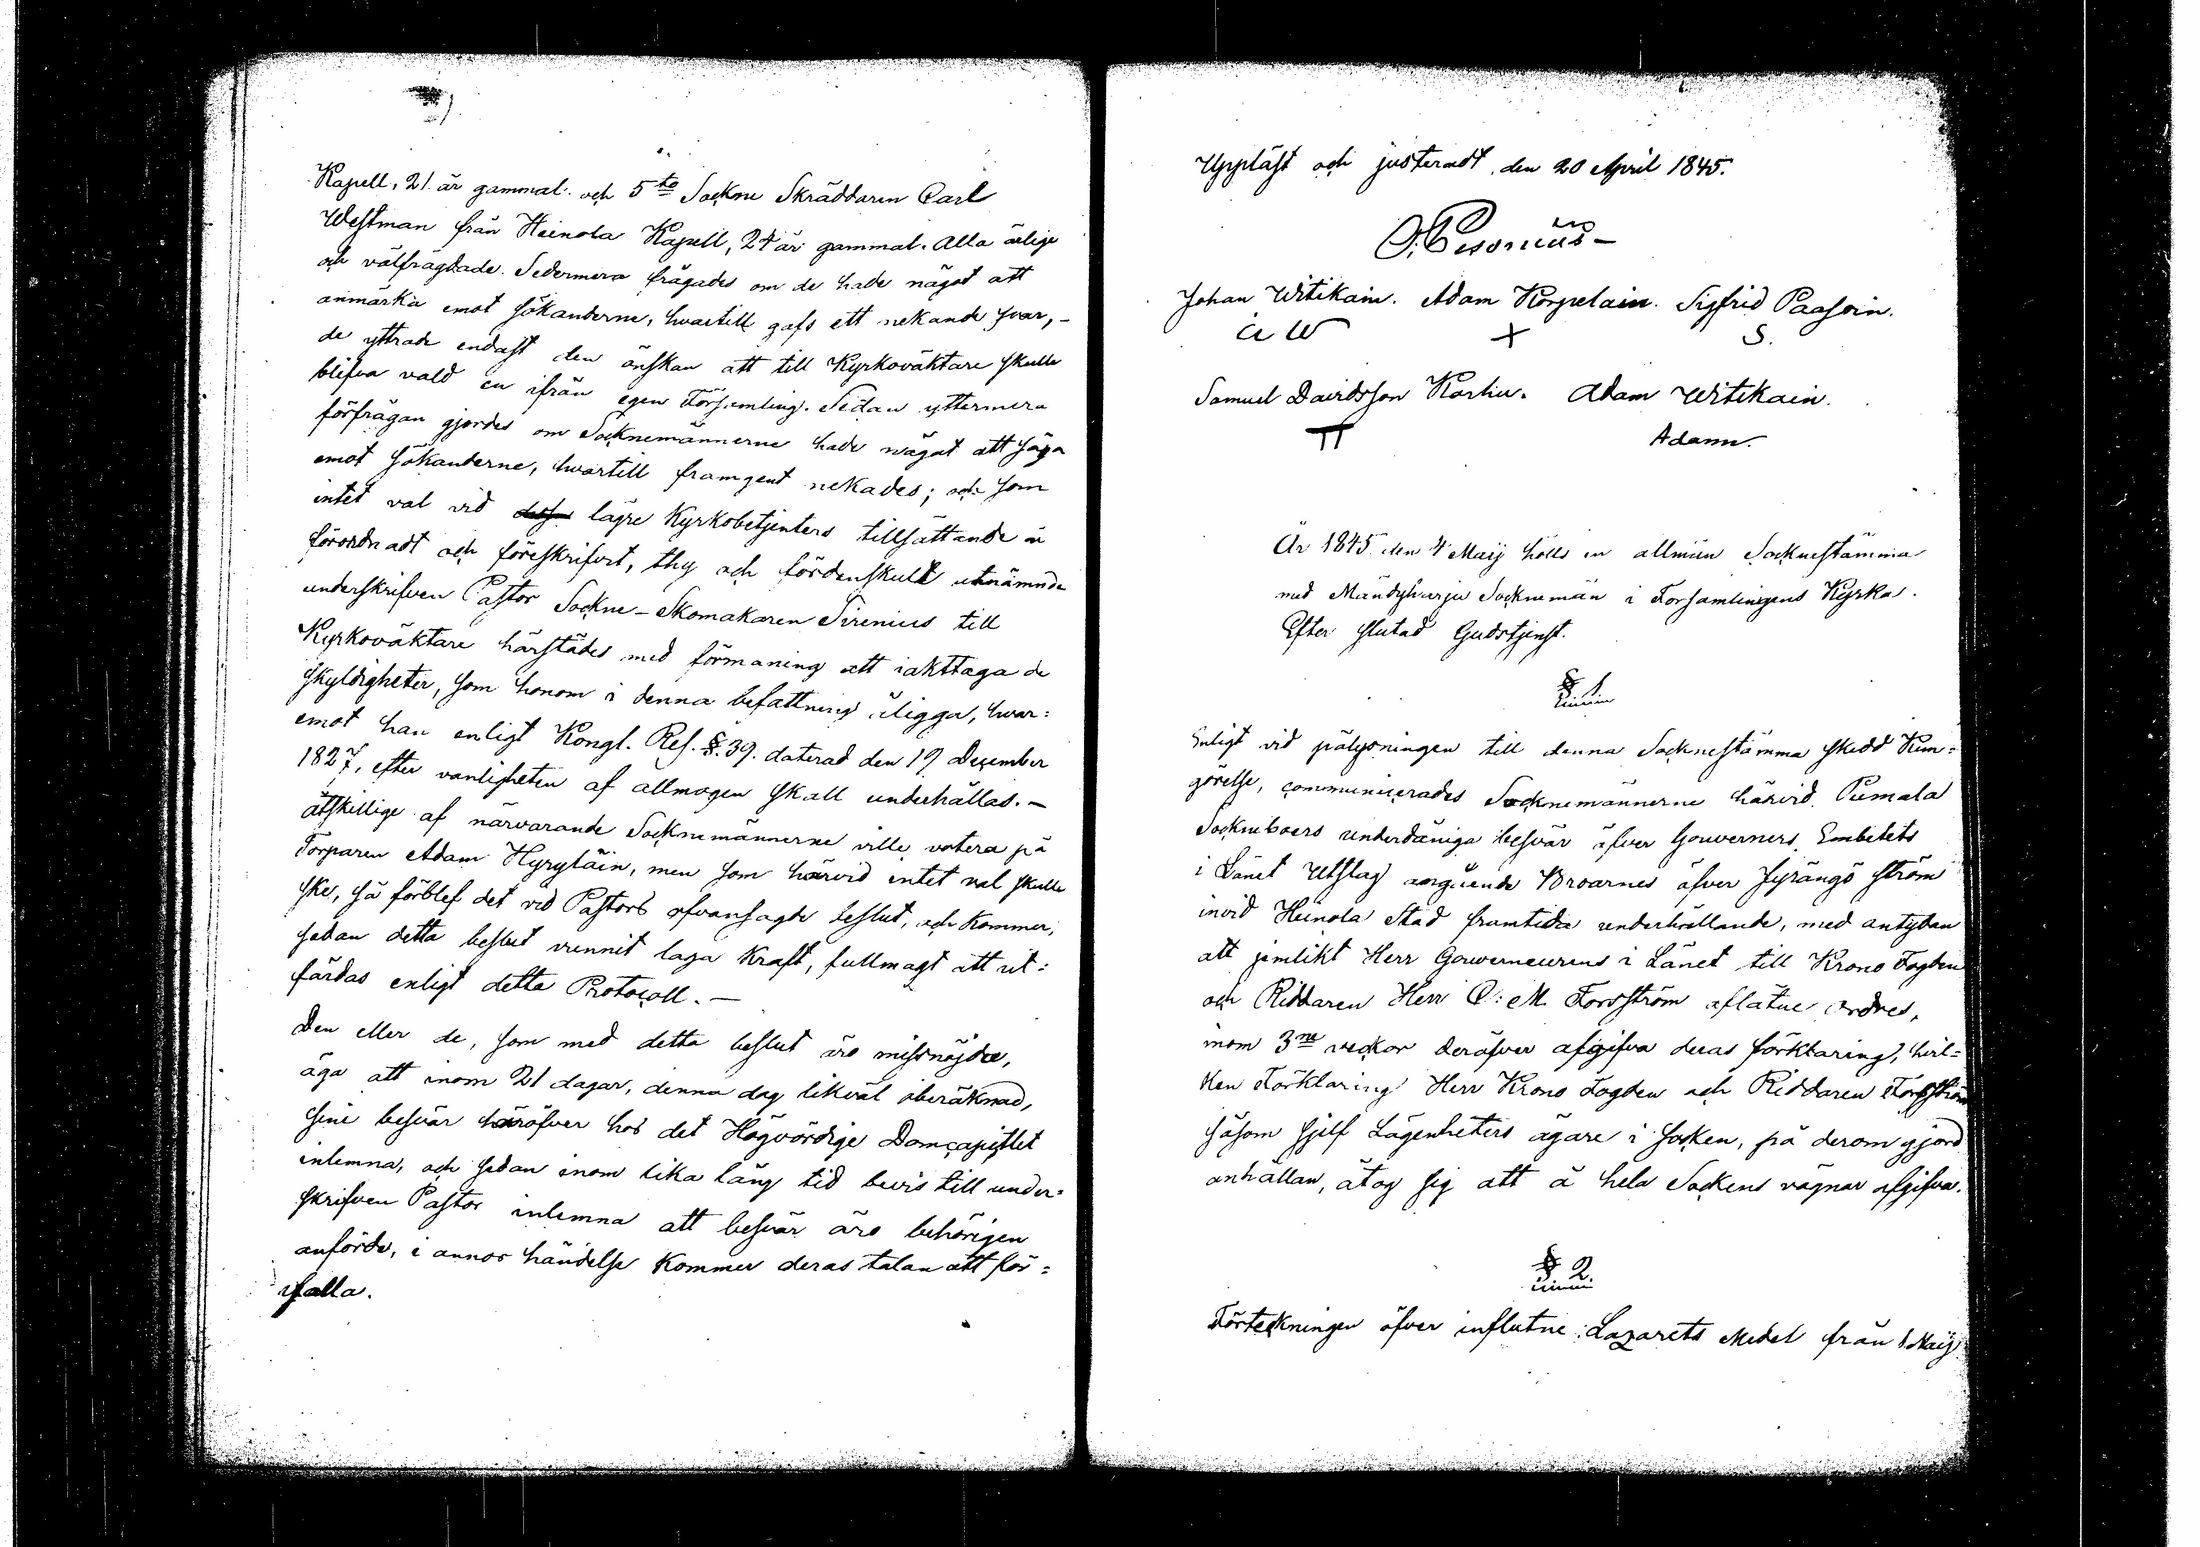 Kapell, 21. år gammal. och 5te Sockne Skräddaren Carl
Westman från Heinola Kapell, 24 år gammal. Alla ärlige
och välfrägdade. Sedermera frågades om de hade något att
anmärka emot sökanderne, hwartill gafs ett nekande svar, –
de yttrade endast den önskan att till Kyrkoväktare skulle
blifva vald en ifrån egen Församling. Sedan yttermera
förfrågan gjordes om Socknemännerne hade något att säga
emot sökanderne, hwartill framgent nekades; och som
intet val vid lägre Kyrkobetjenters tillsättande är
förordnadt och föreskrifvit, thy och fördenskull utnämnde
underskrifven Pastor Sockne-Skomakaren Sirenius till
Kyrkoväktare härstädes med förmaning att iakttaga de
skyldigheter, som honom i denna befattning åligga, hwar=
emot han enligt Kongl. Res. §. 39. daterad den 19 December
1827, efter vanligheten af allmogen skall underhållas. –
Åtskillige af närvarande Socknemännerne ville votera på
Torparen Adam Hyryläin, men som härvid intet val skulle
ske, så förblef det vid Pastors ofvansagde beslut, och kommer,
sedan detta beslut vunnit laga kraft, fullmagt att ut=
färdas enligt detta Protocoll. –
Den eller de, som med detta beslut äro missnöjde,
äga att inom 21 dagar, denna dag likväl oberäknad,
sine besvär häröfver hos det Högvördige Domcapitlet
inlemna, och sedan inom lika lång tid bevis till under=
skrifven Pastor inlemna att besvär äro behörigen
anförde, i annor händelse kommer deras talan att för=
falla.
Uppläst och justeradt den 20 April 1845.
O. Pesonius –
Johan Witikain. Adam Korpelain. Sigfrid Paasoin.
W + S.
Samuel Davidsson Karhu. Adam Witikain.
TT Adam.
År 1845 den 4 Maij hölls en allmän Socknestämma
med Mändyharju Socknemän i Församlingens Kyrka.
Efter slutad Gudstjenst.
§ 1.
Enligt vid pålysningen till denna Socknestämma skedd Kun=
görelse, communicerades Socknemännerne härvid Pumala
Socknboers underdåniga besvär öfver Gouverners Embetets
i Länet Utslag angående Broarnes öfver Jyrängö ström
invid Heinola Stad framtida underhållande, med antydan
att jemlikt Herr Gouverneurens i Länet till Krono Fogden
och Riddaren Herr C: M. Forsström aflåtne ordres,
inom 3ne veckor deröfver afgifva deras förklaring, hvil=
ken Förklaring Herr Krono Fogden och Riddaren Forsström
såsom sjelf Lägenheters ägare i socken, på derom gjord
anhållan, åtog sig att å hela Sockens vägnar afgifva.
§ 2.
Förteckningen öfver influtne Lazarets Medel från 1 Maij